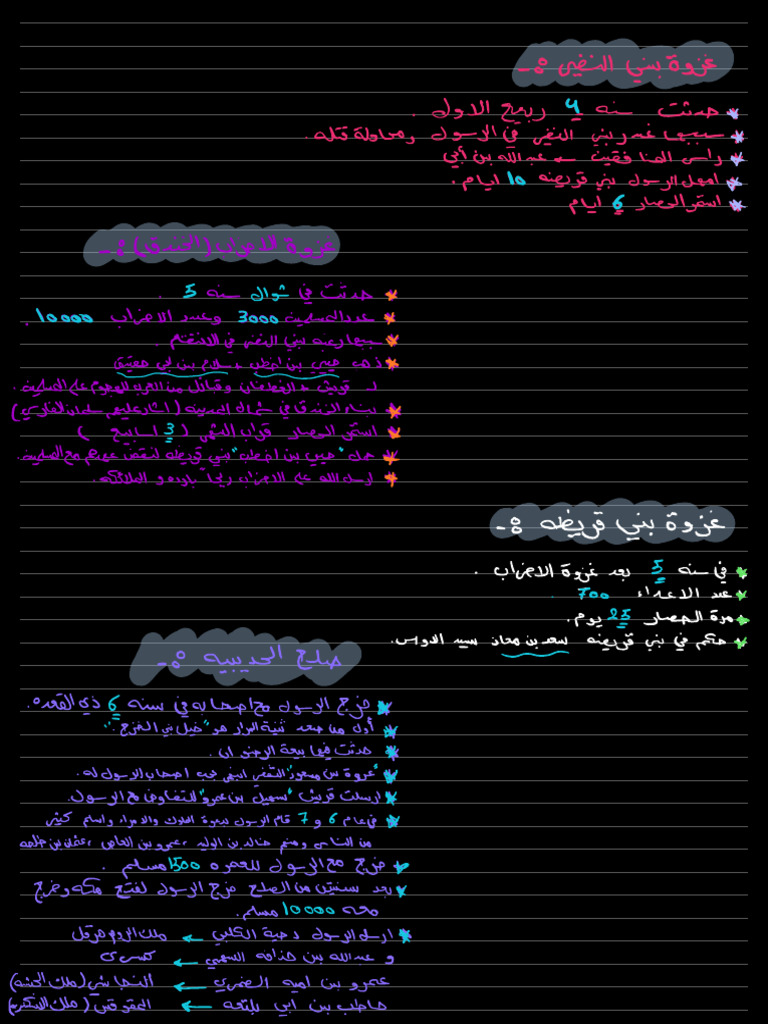 غزوة بني النضير :-
حدثت سنه 4 ربيع الاول .
سببها غدر بني النضر في الرسول ومحاولة قتله .
راس المنافقين ← عبدالله بن أبي
امهل الرسول بني قريضه 10 ايام .
استمر الحصار 6 ايام
غزوة الاحزاب (الخندق) :-
حدثت في شوال سنه 5 .
عدد المسلمين 3000 وعدد الاحزاب 10000 .
سببها رغبه بني النضر في الانتقام .
ذهب حيي بن اخطب و سلام بن ابي حقيق
لـ قريش و الغطفان وقبائل من العرب للهجوم على المسلمين .
بناء الخندق في شمال المدينه (اشار عليهم سلمان الفارسي)
استمر الحصار قراب الشهر ( 3 اسابيع )
حث "حيي بن اخطب" بني قريضه لنقض عهدهم مع المسلمين .
ارسل الله على الاحزاب ريحاً بارده و الملائكه .
غزوة بني قريضه :-
في سنه 5 بعد غزوة الاحزاب .
عدد الاعداء 700 .
مدة الحصار 25 يوم .
حكم في بني قريضه سعد بن معاذ سيد الاوس .
صلح الحديبيه :-
خرج الرسول مع اصحابه في سنه 6 ذي القعده .
أول من صعد ثنية المرار هو "خيل بني الخزرج" .
حدثت فيها بيعة الرضوان .
"عروة بن مسعود" الثقفي انبهر بحب اصحاب الرسول له .
ارسلت قريش "سهيل بن عمرو" للتفاوض مع الرسول .
في عام 6 و 7 قام الرسول بدعوة الملوك والامراء واسلم كثير
من الناس ومنهم خالد بن الوليد ، عمرو بن العاص ، عثمان بن طلحه
خرج مع الرسول للعمره 1500 مسلم .
بعد سنتين من الصلح خرج الرسول لفتح مكه وخرج
معه 10000 مسلم .
ارسل الرسول دحية الكلبي ← ملك الروم هرقل
و عبدالله بن حذافه السهمي ← كسرى
عمرو بن اميه الضمري ← النجاشي (ملك الحبشه)
حاطب بن ابي بلتعه ← المقوقس (ملك الاسكندريه)